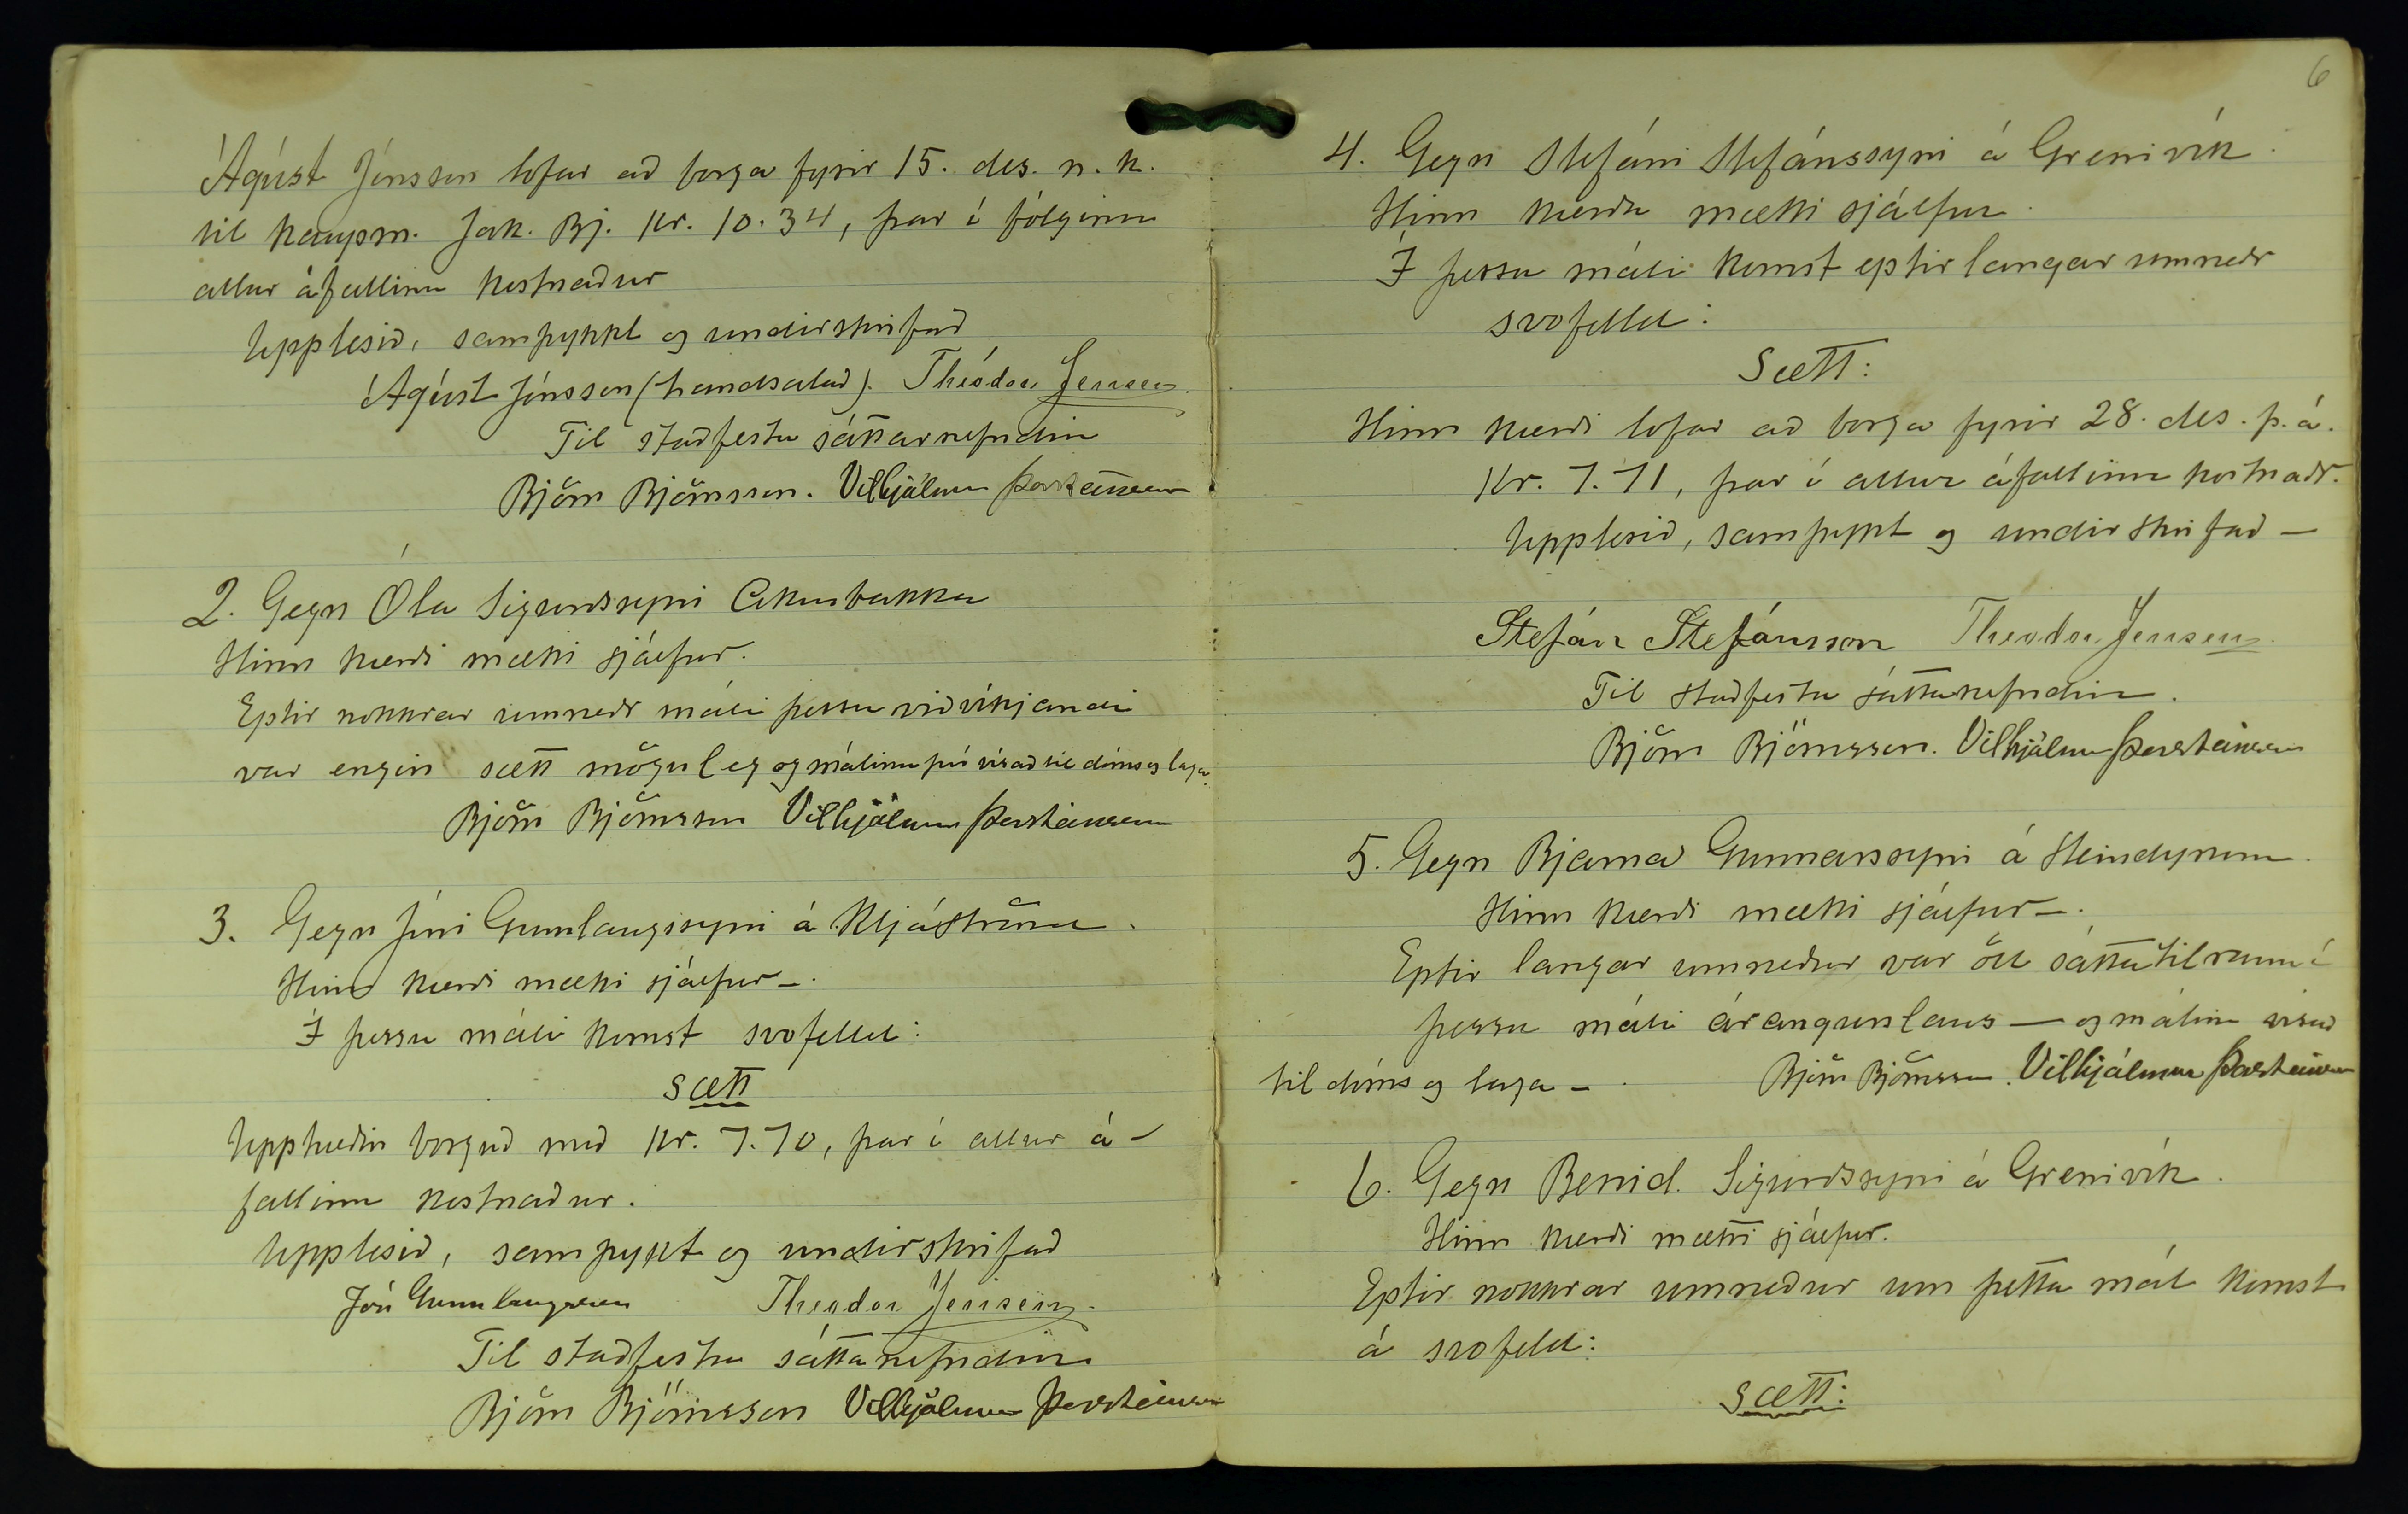 Ágúst Jónsson lofar að borga fyrir 15. des. n. k.
til kaupm. Jak. Bj. Kr. 10.34, þar í fólginn
allur áfallinn kostnaður
Upplesið, samþykkt og undirskrifað
Ágúst Jónsson (handsalað). Théodor Jensen
Til staðfestu sáttarnefndin
Björn Björnsson. Vilhjálmur Þorsteinsson
2. Gegn Óla Sigurðssyni Akurbakka
Hinn kærði mætti sjálfur.
Eptir nokkrar umræðr máli þessu viðvíkjandi
var engin sætt möguleg og málinu því vísað til dóms og laga.
Björn Björnsson Vilhjálmur Þorsteinsson
3. Gegn Jóni Gunnlaugssyni á Kljáströnd.
Hinn kærði mætti sjálfur –.
Í þessu máli komst svofelld:
Sætt
Upphæðin borguð með Kr. 7.70, þar í allur á-
fallinn kostnaður.
Upplesið, samþykt og undirskrifað
Jón Gunnlaugsson Theodor Jensen.
Til staðfestu sáttanefndin
Björn Björnsson Vilhjálmur Þorsteinsson
6
4. Gegn Stefáni Stefánssyni á Grenivík.
Hinn kærða mætti sjálfur.
Í þessu máli komst eptir langar umræðr
svofelld:
Sætt:
Hinn kærði lofar að borga fyrir 28. des. þ. á.
Kr. 7.71, þar í allur áfallinn kostnaðr.
Upplesið, samþykt og undirskrifað –
Stefán Stefánsson Theodor Jensen.
Til staðfestu sáttanefndin.
Björn Björnsson. Vilhjálmur Þorsteinsson
5. Gegn Bjarna Gunnarssyni á Steindyrum.
Hinn kærði mætti sjálfur –.
Eptir langar umræður var öll sáttatilraun í
þessu máli árangurslaus – og málinu vísað
til dóms og laga – Björn Björnsson. Vilhjálmur Þorsteinsson
6. Gegn Benid. Sigurðssyni á Grenivík.
Hinn kærði mætti sjálfur.
Eptir nokkrar umræður um þetta mál komst
á svofeld:
Sætt: